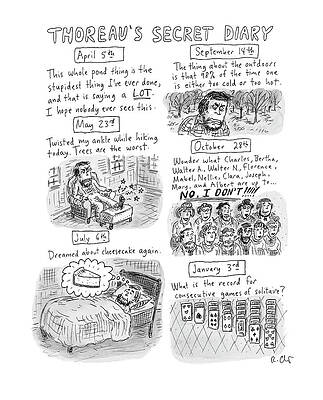 THOREAU'S SECRET DIARY
April 5th
This whole pond thing is the
stupidest thing I've ever done,
and that is saying a LOT.
I hope nobody ever sees this.
May 23rd
Twisted my ankle while hiking
today. Trees are the worst.
July 6th
Dreamed about cheesecake again.
September 14th
The thing about the outdoors
is that 98% of the time one
is either too cold or too hot.
October 28th
Wonder what Charles, Bertha,
Walter A., Walter N., Florence,
Mabel, Nellie, Clara, Joseph,
Mary, and Albert are up to...
NO, I DON'T!!!!!
January 3rd
What is the record for
consecutive games of solitaire?
R. Chast